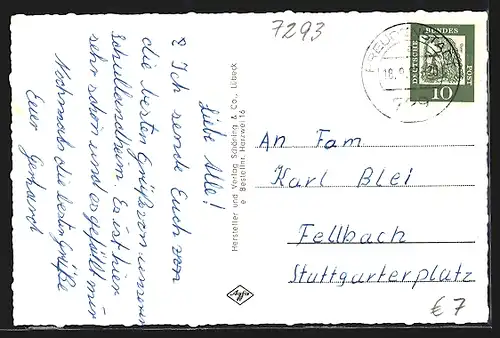 7293
Liebe Alle!
Ich sende Euch von
die besten Grüße von unserem
Schullandheim. Es ist hier
sehr schön und es gefällt mir
Nochmals die besten Grüße
Euer Gerhard
Hersteller und Verlag Schöning & Co., Lübeck
Bestellnr. Harzwei 16
Agfa
DEUTSCHE BUNDESPOST
10
An Fam
Karl Blei
Fellbach
Stuttgarterplatz
€ 7